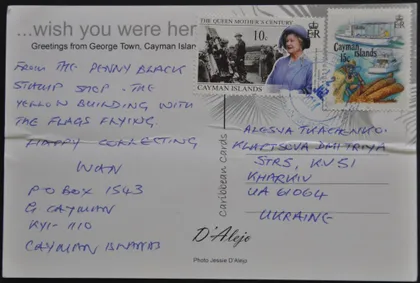 ...wish you were her
Greetings from George Town, Cayman Islan
FROM THE PENNY BLACK
STAMP SHOP. THE
YELLOW BUILDING WITH
THE FLAGS FLYING.
HAPPY COLLECTING
IVAN
PO BOX 1543
G CAYMAN
KY1-1110
CAYMAN
THE QUEEN MOTHER'S CENTURY
10c
CAYMAN ISLANDS
Cayman
islands
15c
Caribbean Cards
ALESYA TKACHENKO.
KLAPTSOVA DMITRIYA
STRS, KV51
KHARKIV
UA 61064
UKRAINE
D'Alejo
Photo Jessie D'Alejo